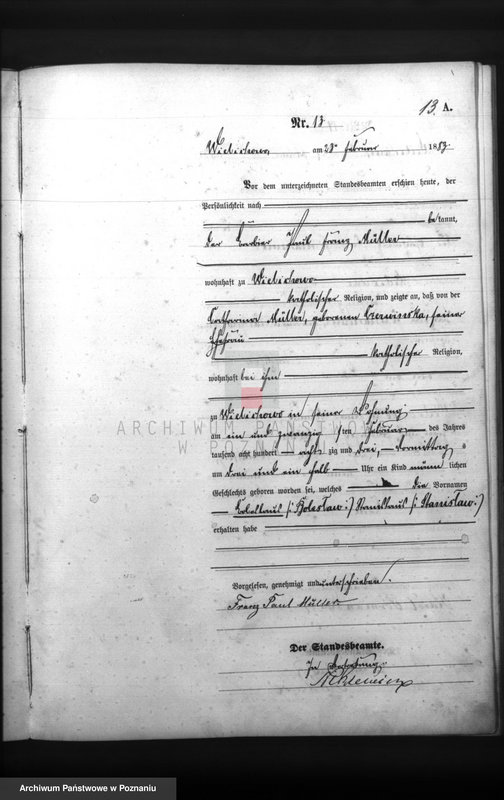 13. A.
Nr. 13
Wielichowo, am 23ten Februar 1883.
Vor dem unterzeichneten Standesbeamten erschien heute, der
Persönlichkeit nach
bekannt,
der Barbier Paul Franz Müller
wohnhaft zu Wielichowo
katholischer Religion, und zeigte an, daß von der
Catharina Müller, geborenen Czerwinska, seiner
Ehefrau
katholischer Religion,
wohnhaft bei ihm
zu Wielichowo in seiner Wohnung
am ein und zwanzigsten Februar des Jahres
tausend acht hundert achtzig und drei, Vormittags
um drei und ein halb Uhr ein Kind männlichen
Geschlechts geboren worden sei, welches die Vornamen
(: Bolesław :) Stanislaus (: Stanisław :)
erhalten habe
Vorgelesen, genehmigt und unterschrieben.
Franz Paul Müller
Der Standesbeamte.
In Vertretung.
ARCHIWUM PAŃSTWOWE
W POZNANIU
Archiwum Państwowe w Poznaniu